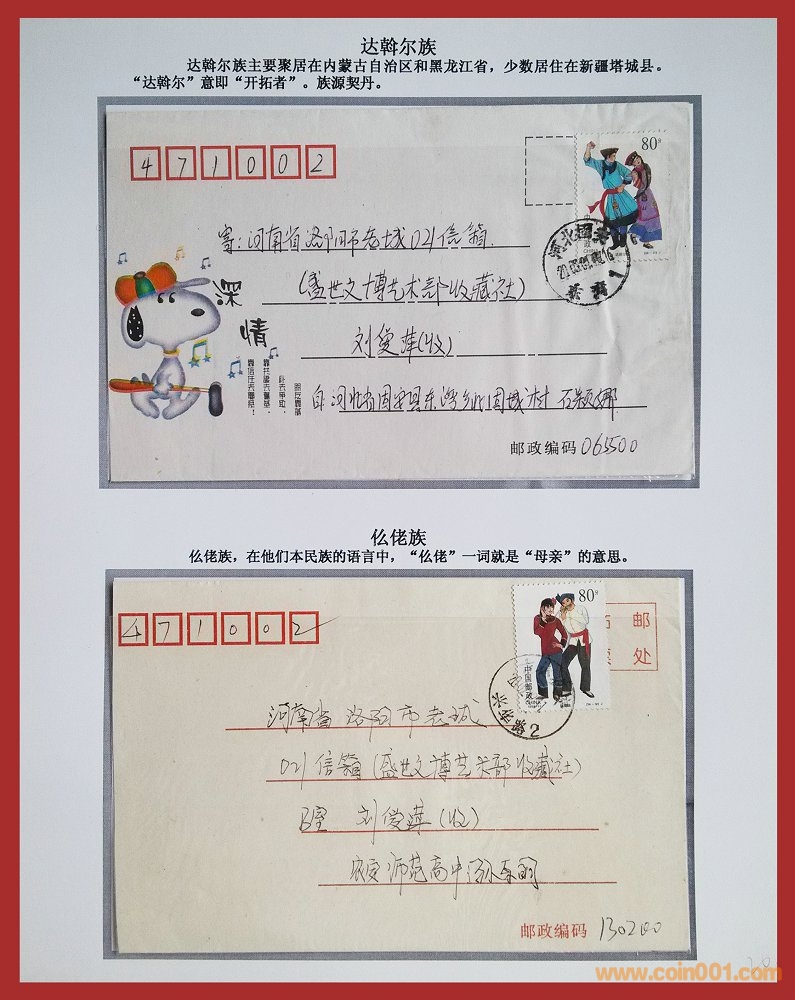 达斡尔族
达斡尔族主要聚居在内蒙古自治区和黑龙江省，少数居住在新疆塔城县。
“达斡尔”意即“开拓者”。族源契丹。
471002
80分
寄：河南省洛阳市老城021信箱
(盛世文博艺术部收藏社)
刘俊萍(收)
深
情
自河北省固安县东湾乡北固城村 石颖娜
邮政编码065500
仫佬族
仫佬族，在他们本民族的语言中，“仫佬”一词就是“母亲”的意思。
471002
80分
中国邮政
CHINA
邮
处
河南省洛阳市老城
021信箱(盛世文博艺术部收藏社)
B室 刘俊萍(收)
农安师范高中
邮政编码 130200
www.coin001.com